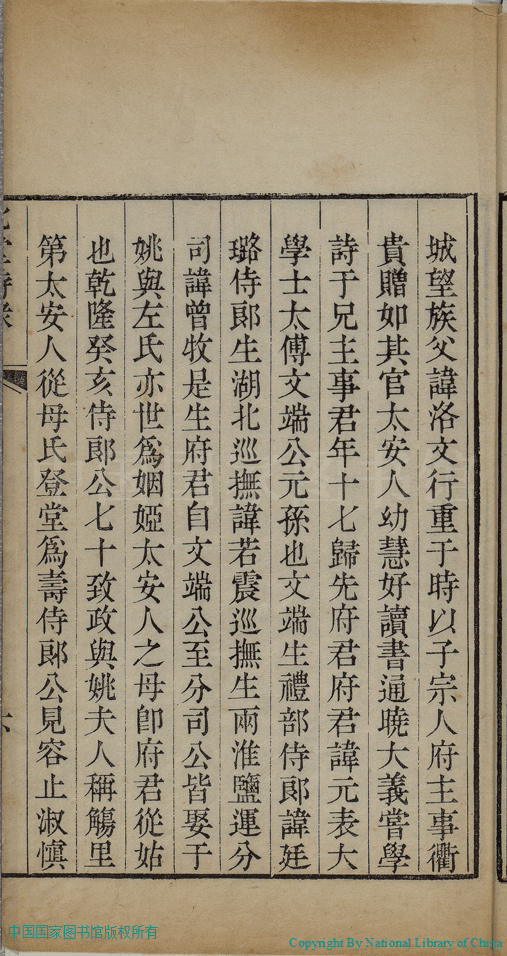 城望族父諱洛文行重于時以子宗人府主事衢
貴贈如其官太安人幼慧好讀書通曉大義嘗學
詩于兄主事君年十七歸先府君府君諱元表大
學士太傅文端公元孫也文端生禮部侍郎諱廷
璐侍郎生湖北巡撫諱若震巡撫生兩淮鹽運分
司諱曾牧是生府君自文端公至分司公皆娶于
姚與左氏亦世為姻婭太安人之母卽府君從姑
也乾隆癸亥侍郎公七十致政與姚夫人稱觴里
第太安人從母氏登堂為壽侍郎公見容止淑慎
六
中国国家图书馆版权所有
Copyright By National Library of China